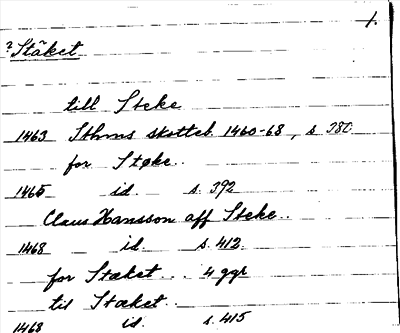 1.
? Stäket
till Steke
1463 Sthms skotteb. 1460-68, s. 380
for Støke..
1465 id. s. 392
Claus Hansson aff Steke..
1468 id. s. 412.
for Stæket... 4 ggr
til Stæket..
1468 id. s. 415